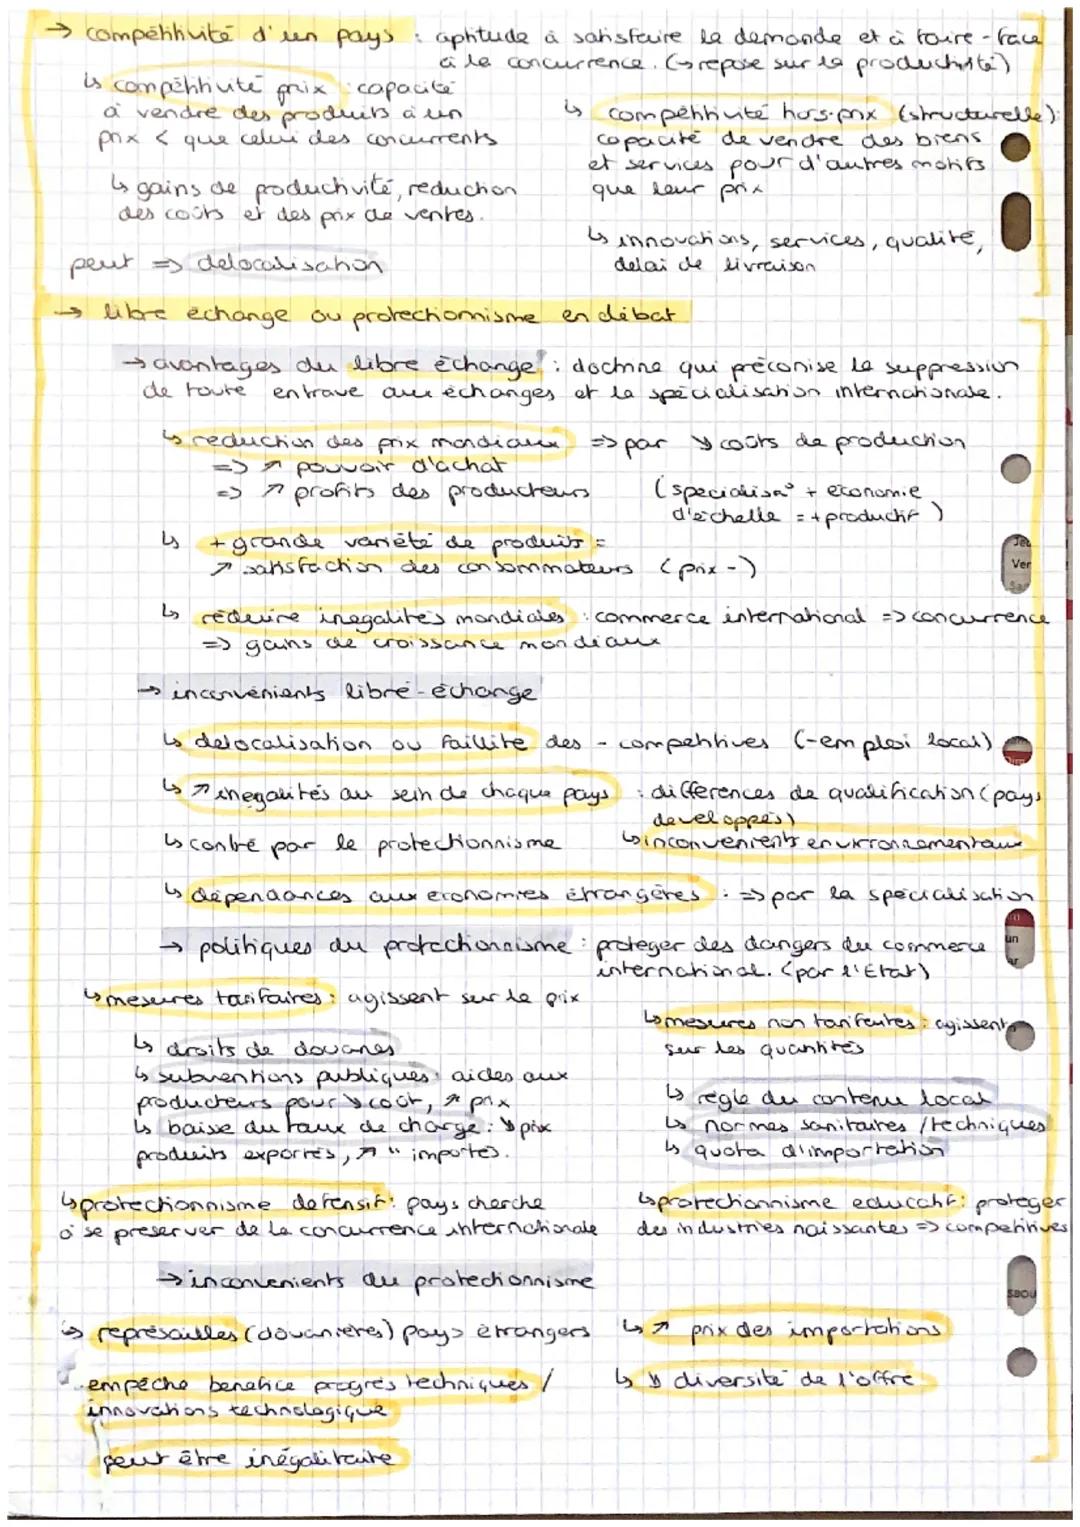 → compétitivité d'un pays : aptitude à satisfaire la demande et à faire-face
à la concurrence. (→ repose sur la productivité)
↳ compétitivité prix : capacité
à vendre des produits à un
prix < que celui des concurrents
↳ gains de productivité, reduction
des coûts et des prix de ventes.
peut => delocalisation
↳ compétitivité hors-prix (structurelle) :
capacité de vendre des biens
et services pour d'autres motifs
que leur prix
↳ innovations, services, qualité,
delai de livraison
→ libre échange ou protectionnisme en débat
→ avantages du libre échange : doctrine qui préconise la suppression
de toute entrave aux échanges et la spécialisation internationale.
↳ reduction des prix mondiaux => par ↘ coûts de production
=> ↗ pouvoir d'achat
=> ↗ profits des producteurs
(specialisa° + économie
d'échelle = + productif)
↳ + grande variété de produits =
↗ satisfaction des consommateurs (prix -)
↳ réduire inegalités mondiales : commerce international => concurrence
=> gains de croissance mondiaux
→ inconvénients libre-échange
↳ delocalisation ou faillite des - compétitives (- emploi local)
↳ ↗ inegalités au sein de chaque pays : differences de qualification (pays
developpés)
↳ contré par le protectionnisme
↳ inconvenients environnementaux
↳ dépendances aux economies étrangères : => par la spécialisation
→ politiques du protectionnisme : proteger des dangers du commerce
international. (par l'Etat)
↳ mesures tarifaires : agissent sur le prix
↳ droits de douanes
↳ subventions publiques : aides aux
producteurs pour ↘ coût, ↗ prix
↳ baisse du taux de charge : ↘ prix
produits exportés, ↗ " importés.
↳ mesures non tarifaires : agissent
sur les quantités
↳ regle du contenu local
↳ normes sanitaires / techniques
↳ quota d'importation
↳ protectionnisme defensif : pays cherche
à se preserver de la concurrence internationale
↳ protectionnisme educatif : proteger
des industries naissantes => competitives
→ inconvenients du protectionnisme
↳ représailles (douanières) pays étrangers
↳ ↗ prix des importations
empêche benefice progrès techniques /
innovations technologique
↳ ↘ diversité de l'offre
peut être inégalitaire
Ver
un
ar